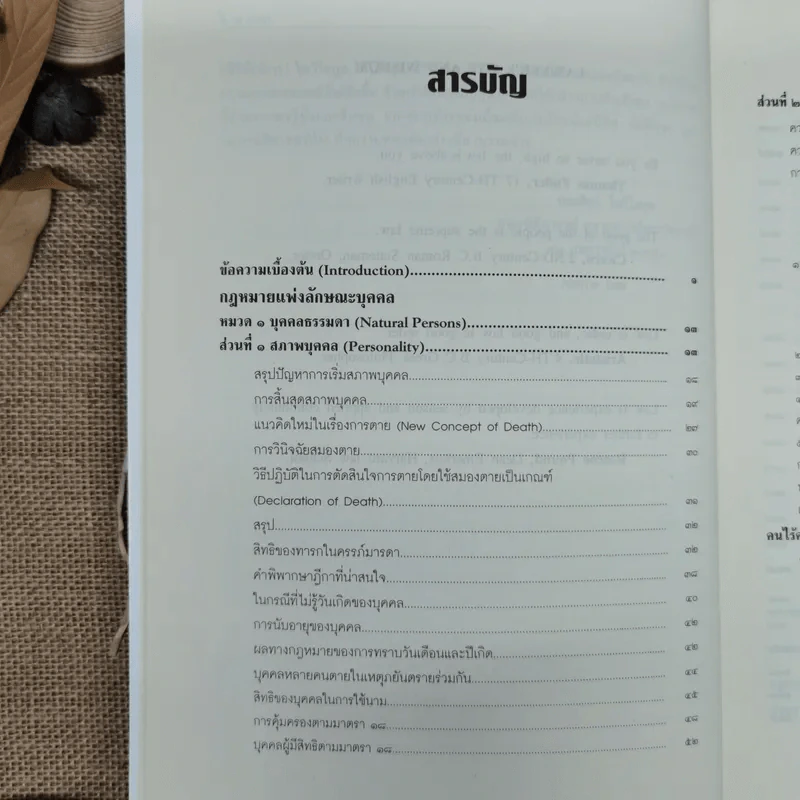 สารบัญ
ข้อความเบื้องต้น (Introduction)........................................ ๑
กฎหมายแพ่งลักษณะบุคคล
หมวด ๑ บุคคลธรรมดา (Natural Persons)........................................ ๑๓
ส่วนที่ ๑ สภาพบุคคล (Personality)........................................ ๑๓
สรุปปัญหาการเริ่มสภาพบุคคล........................................ ๑๘
การสิ้นสุดสภาพบุคคล........................................ ๑๙
แนวคิดใหม่ในเรื่องการตาย (New Concept of Death)........................................ ๒๗
การวินิจฉัยสมองตาย........................................ ๓๐
วิธีปฏิบัติในการตัดสินใจการตายโดยใช้สมองตายเป็นเกณฑ์
(Declaration of Death)........................................ ๓๑
สรุป........................................ ๓๒
สิทธิของทารกในครรภ์มารดา........................................ ๓๒
คำพิพากษาฎีกาที่น่าสนใจ........................................ ๓๘
ในกรณีที่ไม่รู้วันเกิดของบุคคล........................................ ๔๐
การนับอายุของบุคคล........................................ ๔๒
ผลทางกฎหมายของการทราบวันเดือนและปีเกิด........................................ ๔๒
บุคคลหลายคนตายในเหตุภยันตรายร่วมกัน........................................ ๔๔
สิทธิของบุคคลในการใช้นาม........................................ ๔๕
การคุ้มครองตามมาตรา ๑๘........................................ ๔๘
บุคคลผู้มีสิทธิตามมาตรา ๑๘........................................ ๕๒
ส่วนที่ ๒
คนไร้